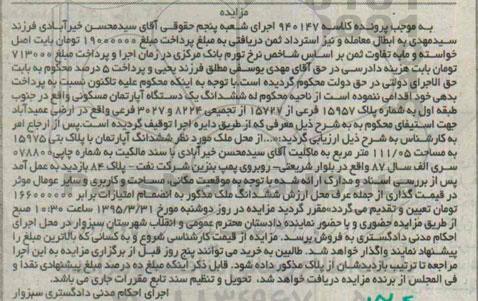 مزایده
به موجب پرونده کلاسه ۹۴۰۱۴۷ اجرای شعبه پنجم حقوقی آقای سیدمحسن خیرآبادی فرزند
سیدمهدی به ابطال معامله و نیز استرداد ثمن دریافتی به مبلغ پرداخت مبلغ ۱۹۰۰۰۰۰۰ تومان بابت اصل
خواسته و مابه تفاوت ثمن بر اساس شاخص نرخ تورم بانک مرکزی در زمان اجرا و پرداخت مبلغ ۷۱۳۰۰۰
تومان بابت هزینه دادرسی در حق آقای مهدی یوسفی مطلق فرزند یحیی و پرداخت ۵ درصد محکوم به بابت
حق الاجرای دولتی در حق دولت محکوم گردیده است. با توجه به اینکه محکوم علیه تاکنون نسبت به پرداخت
بدهی خود اقدامی ننموده است از ناحیه محکوم له ششدانگ یک دستگاه آپارتمان مسکونی واقع در جنوب
طبقه اول به شماره پلاک ۱۵۹۵۷ فرعی از ۱۵۷۲۷ از تجمیعی ۸۲۲۴ و ۳۰۲۷ واقع در اراضی عمیدآباد
جهت استیفای محکوم به به شرح ذیل معرفی که از طریق دایره اجرا توقیف گردیده است. پس از ارجاع امر
به کارشناس به شرح ذیل ارزیابی گردیده... از محل ملک مورد نظر ششدانگ آپارتمان با پلاک ثبتی ۱۵۹۷۵
به مساحت ۱۱۱/۰۵ متر مربع به مالکیت آقای سیدمحسن خیرآبادی با سند مالکیت به شماره چاپی ۰۷۸۸۰۰
سری الف سال ۸۷ واقع در بلوار شریعتی - روبروی پمپ بنزین شرکت نفت - پلاک ۸۴ بازدید به عمل آمد
پس از بررسی اسناد و مدارک ارائه شده با توجه به موقعیت مکانی، مساحت و کاربری و سایر عوامل موثر
در قیمت گذاری از جمله عرف محل ارزش ششدانگ ملک مذکور به انضمام امتیازات برابر ۱۶۶۰۰۰۰۰۰
تومان تعیین و تقدیم می گردد» مقرر گردید مزایده در روز دوشنبه مورخ ۱۳۹۵/۳/۳۱ ساعت ۱۰:۳۰ صبح
از طریق مزایده حضوری و با حضور نماینده دادستان محترم عمومی و انقلاب شهرستان سبزوار در محل اجرای
احکام مدنی دادگستری به فروش برسد. مزایده از قیمت کارشناسی شروع و به کسانی که بالاترین مبلغ را
پیشنهاد نمایند واگذار خواهد شد. طالبین به خرید می توانند پنج روز قبل از برگزاری مزایده به این اجرا
مراجعه تا ترتیب بازدیدشان از پلاک مذکور داده شود. قابل ذکر اینکه مبلغ ده درصد مبلغ پیشنهادی نقدا و
فی المجلس از برنده مزایده دریافت خواهد شد، تحویل و تنظیم سند تابع مقررات جاری می باشد.
اجرای احکام مدنی دادگستری سبزوار